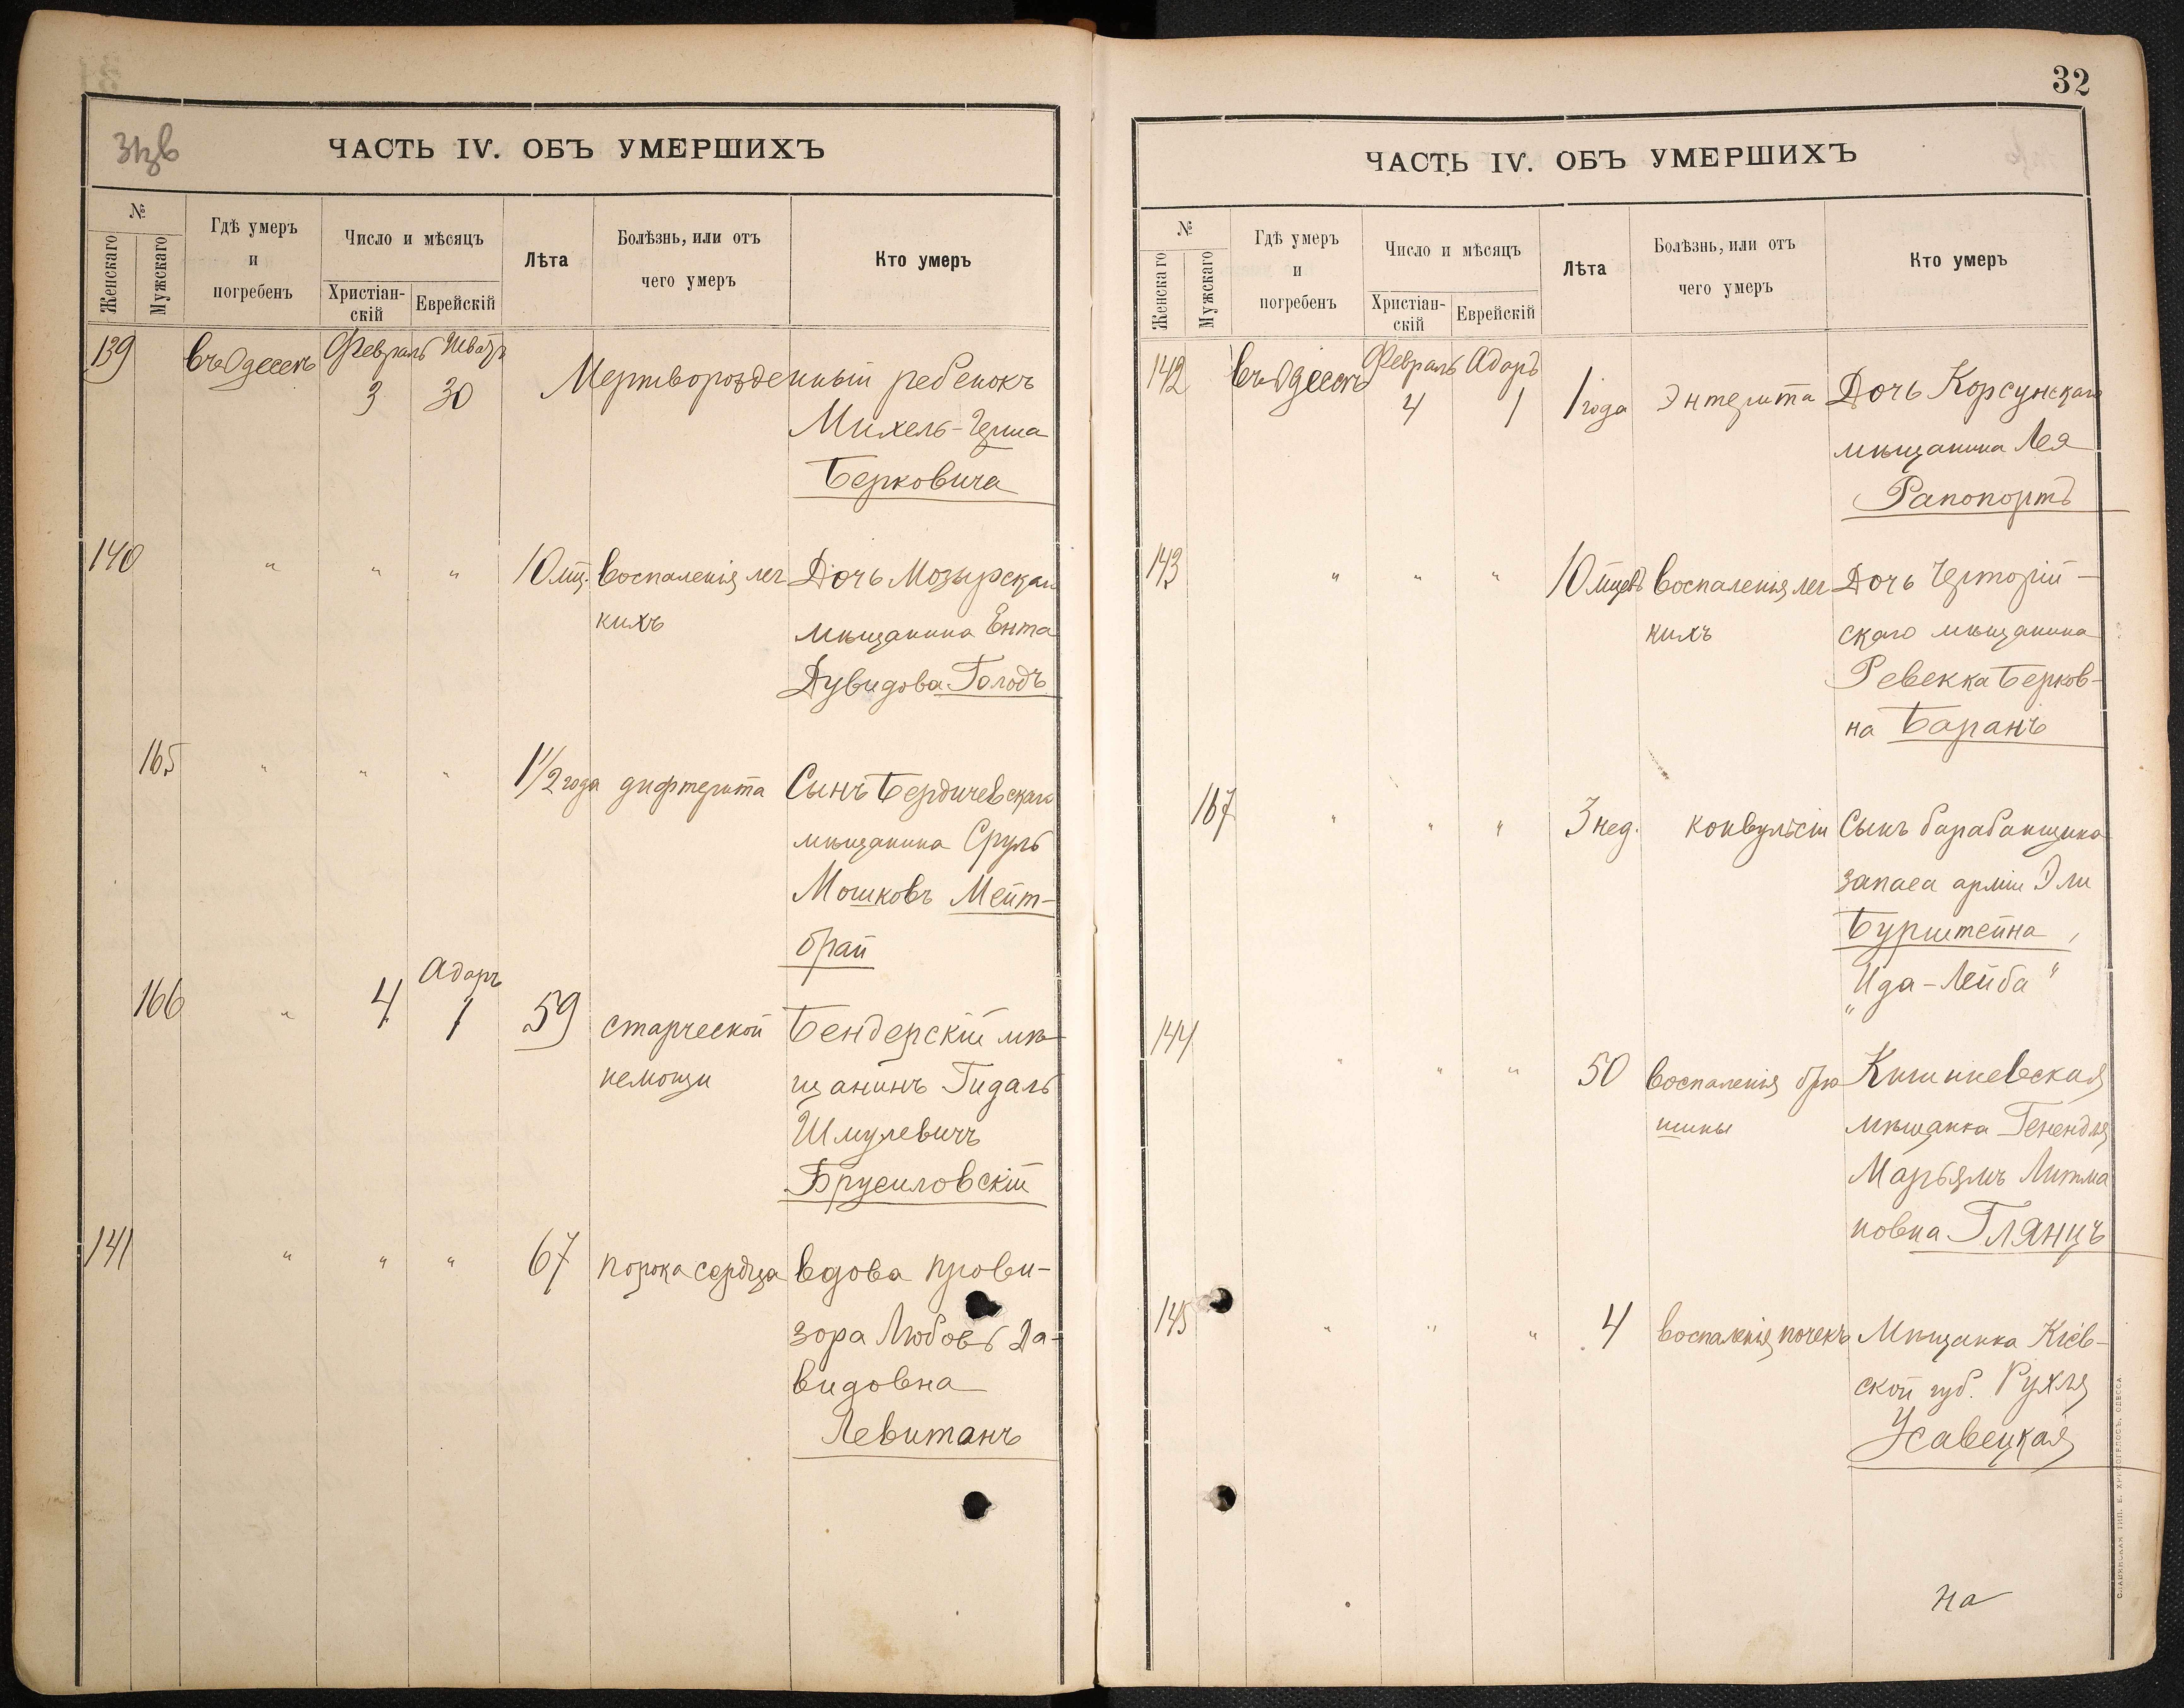 Экв
ЧАСТЬ IV. ОБЪ УМЕРШИХЪ
№
Женскаго
Мужскаго
Гдѣ умеръ
и
погребенъ
Число и мѣсяцъ
Христіан-
скій
Еврейскій
Лѣта
Болѣзнь, или отъ
чего умеръ
Кто умеръ
139 въ Одессѣ Февраль Шватъ
3 30 Мертворожденный ребенокъ
Михель-Герша
Берковича
140 " " " 10 мц. воспаленія лег Дочь Мозырскаго
кихъ мѣщанина Ента
Дувидова Голодъ
165 " " " 1 1/2 года дифтерита Сынъ Бердичевскаго
мѣщанина Сруль
Мошковъ Мейт-
брай
Адаръ
166 " 4 1 59 старческой Бендерскій мѣ-
немощи щанинъ Гидаль
Шмулевичъ
Брусиловскій
141 " " " 67 порока сердца вдова прови-
зора Любовь Да-
видовна
Левитанъ
32
ЧАСТЬ IV. ОБЪ УМЕРШИХЪ
№
Женскаго
Мужскаго
Гдѣ умеръ
и
погребенъ
Число и мѣсяцъ
Христіан-
скій
Еврейскій
Лѣта
Болѣзнь, или отъ
чего умеръ
Кто умеръ
142 въ Одессѣ Февраль Адаръ
4 1 1 года Энтерита Дочь Корсунскаго
мѣщанина Лея
Рапопортъ
143 " " " 10 мцевъ воспаленія лег Дочь Черторій-
кихъ скаго мѣщанина
Ревекка Берков-
на Баранъ
167 " " " 3 нед. конвульсіи Сынъ барабанщика
запаса арміи Эли
Бурштейна,
"Ида-Лейба"
144 " " " 50 воспаленія брю Кишиневская
шины мѣщанка Генендля
Марьямъ Литма
новна Глянцъ
145 " " " 4 воспаленія почекъ Мѣщанка Кіев-
ской губ. Рухля
Усавецкая
на
СЛАВЯНСКАЯ ТИП. Е. ХРИСОГЕЛОСЪ, ОДЕССА.